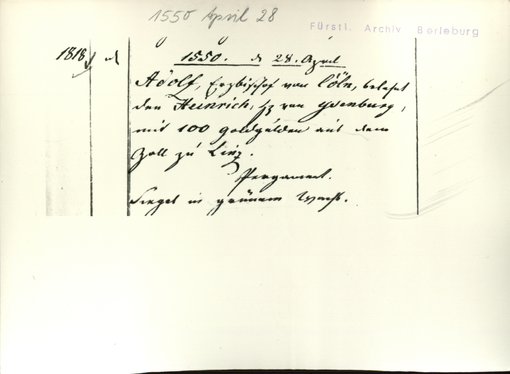 1550 April 28
Fürstl. Archiv Berleburg
1818
1550. d 28. April
Adolf, Erzbischof von Cöln, belehnt
den Heinrich, Hz von Ysenburg,
mit 100 Goldgulden aus dem
Zoll zu Linz.
Pergament.
Siegel in grünem Wachs.